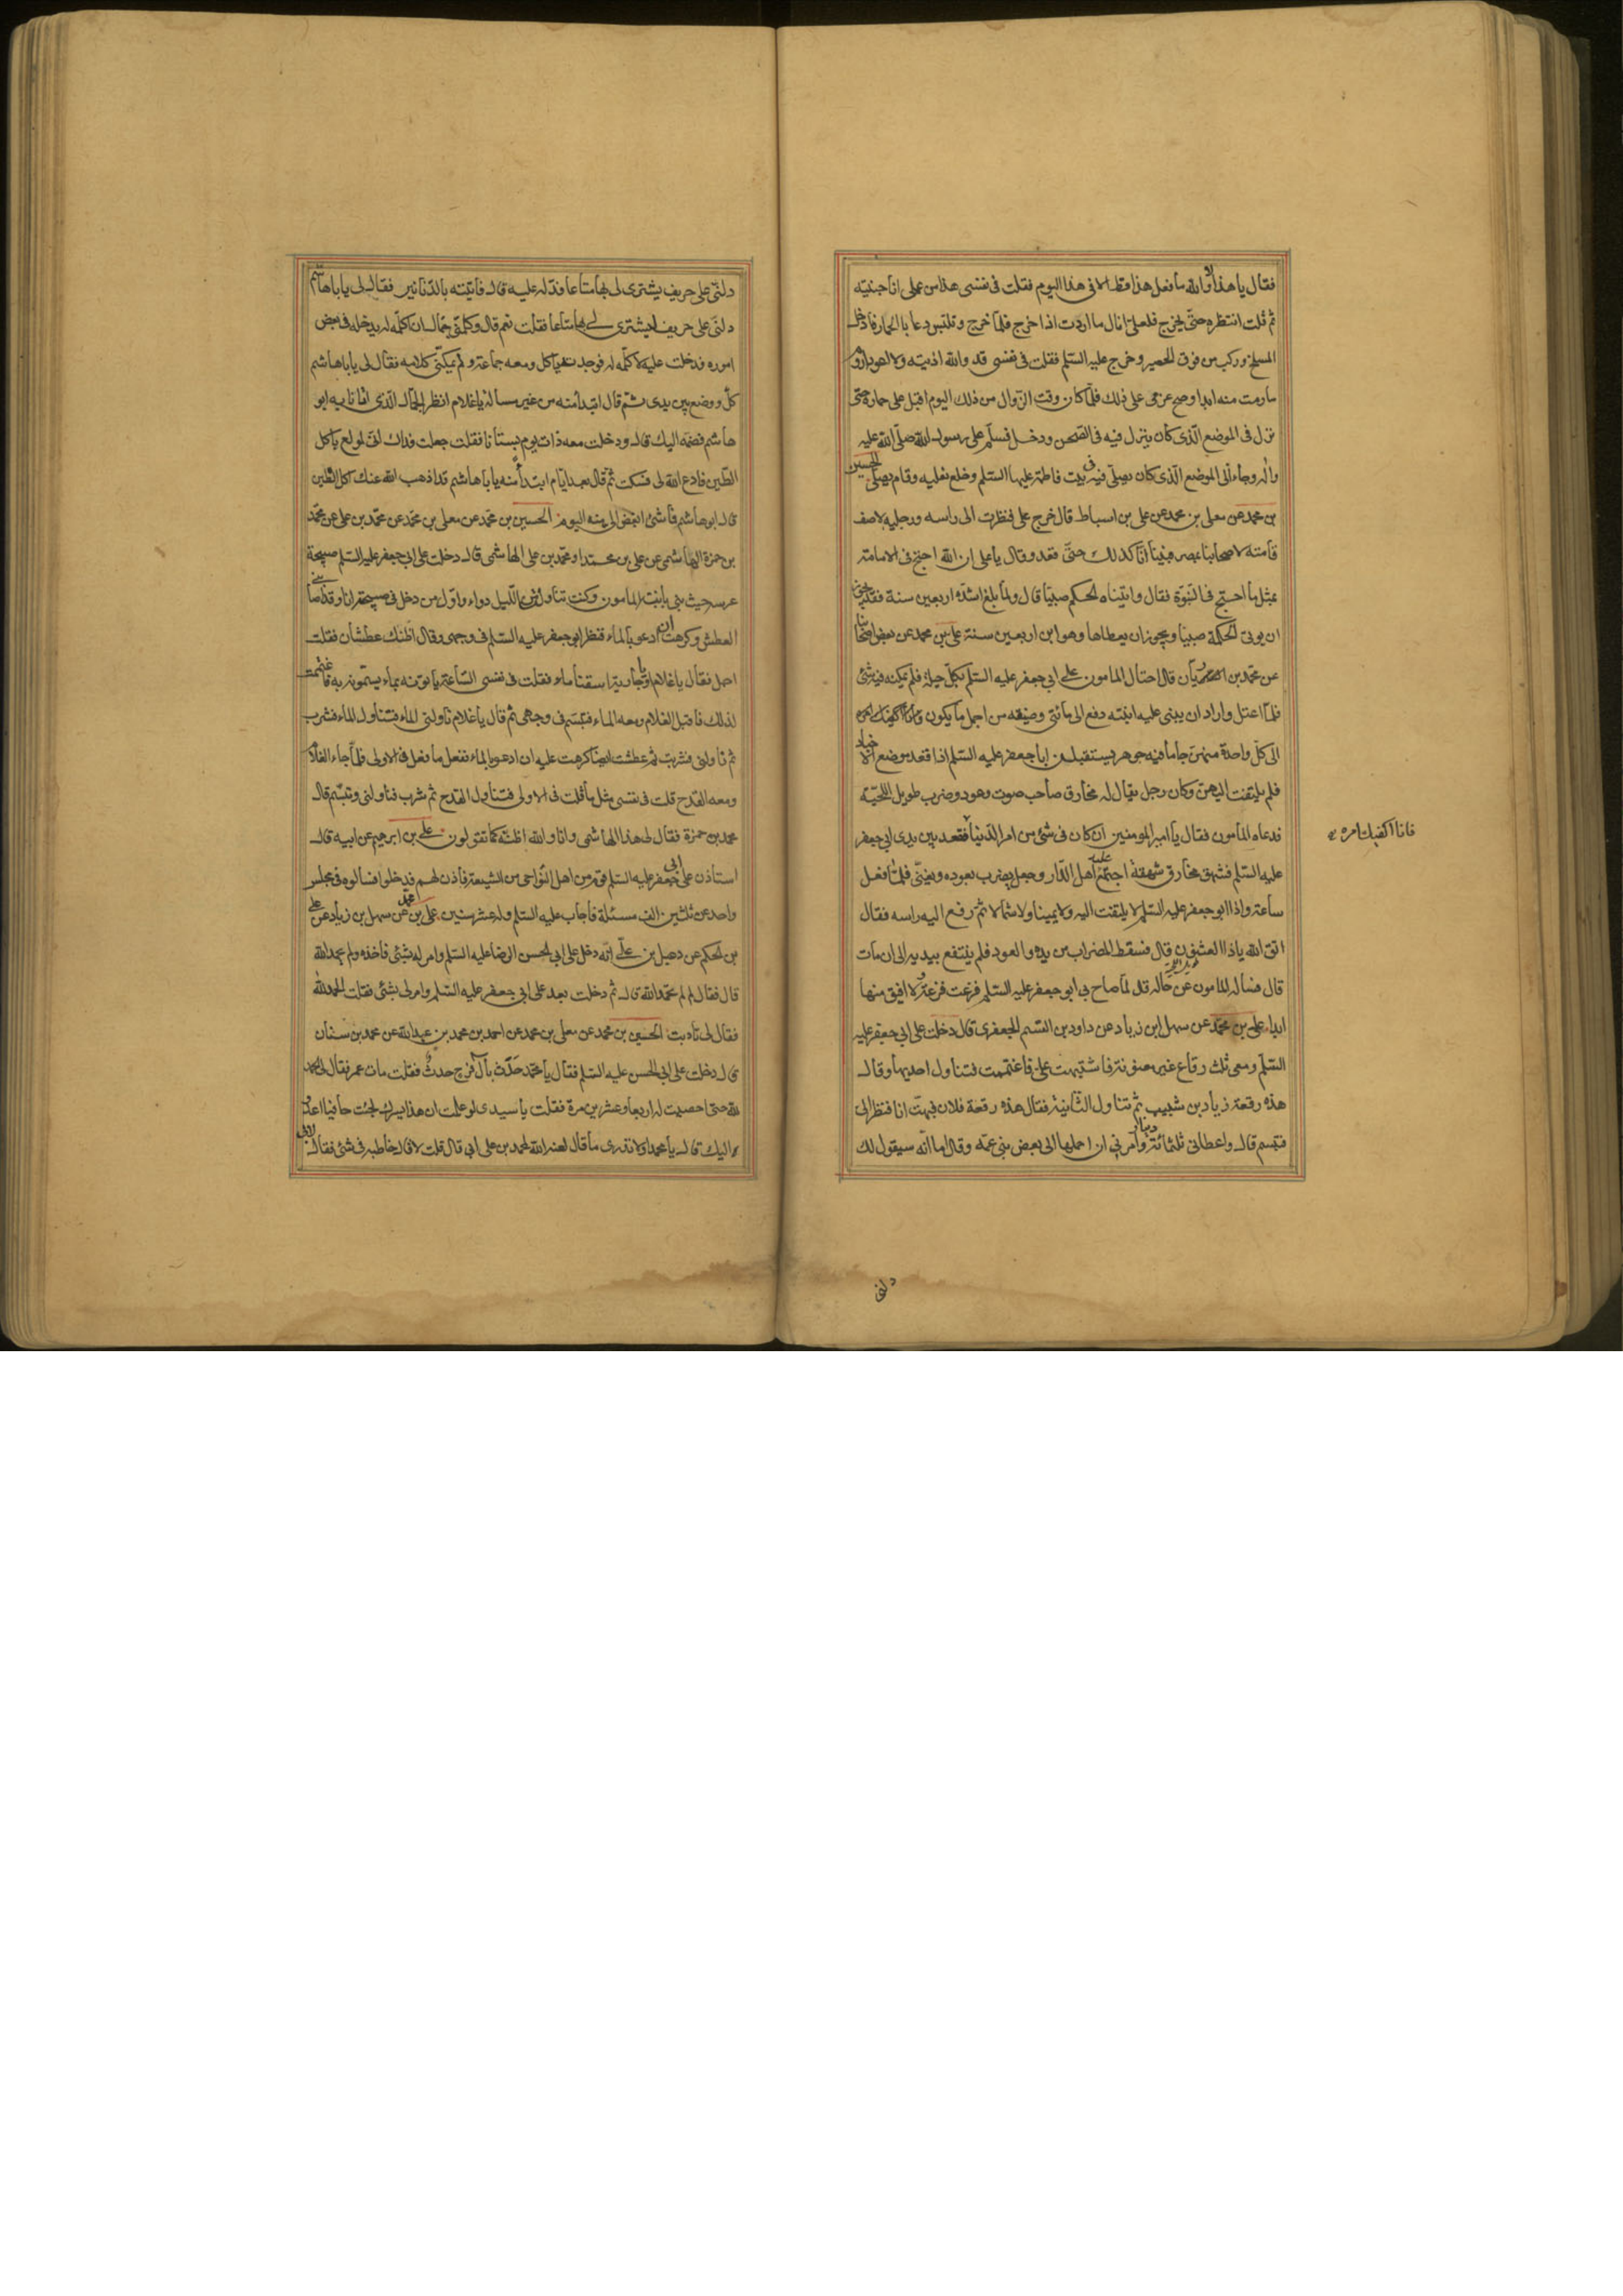 فقال يا هذا لا والله ما فعل هذا قط الا فى هذا اليوم فقلت فى نفسى هذا من عملى انا جنيته
ثم قلت انتظره حتى يخرج فلعلى انال ما اردت اذا خرج فلما خرج وتلبس دعا بالحمار فادخل
المسلخ وركب من فوق الحصير وخرج عليه السلم فقلت فى نفسى قد والله اذيته ولا اعود اروم
ما رمت منه ابدا وصح عزمى على ذلك فلما كان وقت الزوال من ذلك اليوم اقبل على حماره حتى
نزل فى الموضع الذى كان ينزل فيه فى الصحن ودخل فسلم على رسول الله صلى الله عليه
واله وجاء الى الموضع الذى كان يصلى فيه فى بيت فاطمة عليها السلم وخلع نعليه وقام يصلى الحسين
بن محمد عن معلى بن محمد عن على بن اسباط قال خرج على فنظرت الى راسه ورجليه لاصف
قامته لاصحابنا بمصر فبينا انا كذلك حتى قعد وقال يا على ان الله احتج فى الامامة
بمثل ما احتج فى النبوة فقال واتيناه الحكم صبيا قال ولما بلغ اشده اربعين سنة فقد يجوز
ان يوتى الحكمة صبيا ويجوز ان يعطاها وهو ابن اربعين سنة على بن محمد عن بعض اصحابنا
عن محمد بن الريان قال احتال المامون على ابى جعفر عليه السلم بكل حيلة فلم يمكنه فيه شئ
فلما اعتل واراد ان يبنى عليه ابنته دفع الى مأتى وصيفه من اجمل ما يكون
الى كل واحدة منهن جاما فيه جوهر يستقبلن ابا جعفر عليه السلم اذا قعد موضع الاخيار
فلم يلتفت اليهن وكان رجل يقال له مخارق صاحب صوت وعود وضرب طويل اللحية
فدعاه المامون فقال يا امير المومنين ان كان فى شئ من امر الدنيا فقعد بين يدى ابى جعفر
فانا اكفيك امره
عليه السلم فشهق مخارق شهقة اجتمع عليه اهل الدار وجعل يضرب بعوده ويغنى فلما فعل
ساعة واذا ابو جعفر عليه السلم لا يلتفت اليه ولا يمينا ولا شمالا ثم رفع اليه راسه فقال
اتق الله يا ذا العثنون قال فسقط المضراب من يده والعود فلم ينتفع بيديه الى ان مات
قال فساله المامون عن حاله قال لما صاح بى ابو جعفر عليه السلم فزعت فزعة لا افيق منها
ابدا على بن محمد عن سهل ابن زياد عن داود بن القسم الجعفرى قال دخلت على ابى جعفر عليه
السلم ومعى ثلث رقاع غير معنونة فاشتبهت على فاغتممت فتناول احديها وقال
هذه رقعة زياد بن شبيب ثم تناول الثانية فقال هذه رقعة فلان فبهت انا فنظر الى
فتبسم قال واعطانى ثلثمائة دينار وامرنى ان احملها الى بعض بنى عمه وقال اما انه سيقول لك
دلنى
دلنى على حريف يشترى لى بها متاعا فدله عليه قال فاتيته بالدنانير فقال لى يا ابا هاشم
دلنى على حريف يشترى لى بها متاعا فقلت نعم قال وكلمنى جمال ان اكلمه له يدخله فى بعض
اموره فدخلت عليه لاكلمه له فوجدته ياكل ومعه جماعة ولم يمكنى كلامه فقال لى يا ابا هاشم
كل ووضع بين يدى ثم قال ابتدأ منه من غير مسالة يا غلام انظر الجمال الذى اتانا به ابو
هاشم فضمه اليك قال ودخلت معه ذات يوم بستانا فقلت جعلت فداك انى لمولع باكل
الطين فادع الله لى فسكت ثم قال بعد ايام ابتدأ منه يا ابا هاشم قد اذهب الله عنك اكل الطين
قال ابو هاشم فما شئ ابغض الى منه اليوم الحسين بن محمد عن معلى بن محمد عن محمد بن على عن محمد
بن حمزة الهاشمى عن على بن محمد او محمد بن على الهاشمى قال دخلت على ابى جعفر عليه السلم صبيحة
عرسه حيث بنى بابنة المامون وكنت تناولت من الليل دواء واول من دخل فى صبيحته انا وقد اصابنى
العطش وكرهت ان ادعو بالماء فنظر ابو جعفر عليه السلم فى وجهى وقال اظنك عطشان فقلت
اجل فقال يا غلام او يا جارية اسقنا ماء فقلت فى نفسى الساعة ياتونه بماء يسمونه به فاغتممت
لذلك فاقبل الغلام ومعه الماء فتبسم فى وجهى ثم قال يا غلام ناولنى الماء فتناول الماء فشرب
ثم ناولنى فشربت ثم عطشت ايضا كرهت عليه ان ادعو بالماء ففعل ما فعل فى الاولى فلما جاء الغلام
ومعه القدح قلت فى نفسى مثل ما قلت فى الاولى فتناول القدح ثم شرب فناولنى وتبسم قال
محمد بن حمزة فقال لى هذا الهاشمى وانا والله اظنه كما تقولون على بن ابرهيم عن ابيه قال
استاذن على ابى جعفر عليه السلم قوم من اهل النواحى من الشيعة فاذن لهم فدخلوا فسالوه فى مجلس
واحد عن ثلثين الف مسئلة فاجاب عليه السلم وله عشر سنين على بن محمد عن سهل بن زياد عن على
بن الحكم عن دعبل بن على انه دخل على ابى الحسن الرضا عليه السلم وامر له بشئ فاخذه ولم يحمد الله
قال فقال لم لم تحمد الله قال ثم دخلت بعد على ابى جعفر عليه السلم وامر لى بشئ فقلت الحمد لله
فقال لى تادبت الحسين بن محمد عن معلى بن محمد عن احمد بن محمد بن عبد الله عن محمد بن سنان
قال دخلت على ابى الحسن عليه السلم فقال يا محمد حدث بآل فرج حدث فقلت مات عمر فقال الحمد
لله حتى احصيت له اربعا وعشرين مرة فقلت يا سيدى لو علمت ان هذا يسرك لجئت حافيا اعدو
اليك قال يا محمد او لا تدرى ما قال لعنه الله لمحمد بن على ابى قال قلت لا قال خاطبه فى شئ فقال